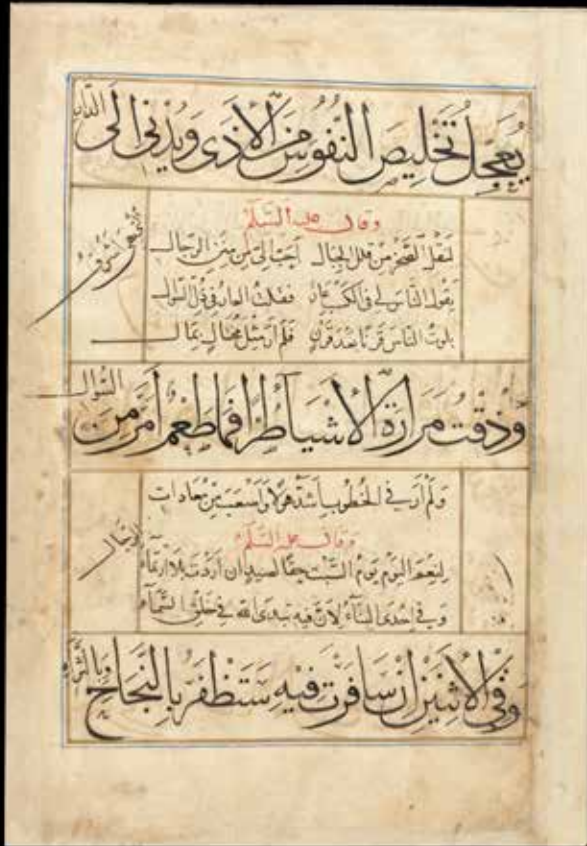 يُعَجِّلُ تَخْلِيصَ النُّفُوسِ مِنَ الْأَذَى وَيُدْنِي إِلَى الدَّارِ
وقال عليه السّلم
لنقل الصّخر من قلل الجبال أحبّ إليّ من منن الرّجال
يقول النّاس لي في الكسب عار فقلت العار في ذلّ السّوال
بلوت النّاس قرنا بعد قرن فلم أر مثل مختال بمال
وَذُقْتُ مَرَارَةَ الْأَشْيَاءِ طُرًّا فَمَا طَعْمٌ أَمَرُّ مِنَ السّوال
ولم أر في الخطوب أشدّ هولا وأصعب من معادات الرّجال
وقال عليه السّلم
لنعم اليوم يوم السّبت حقّا لصيد ان أردت بلا امتراء
وفي احدى البناء لأنّ فيه تبدى الله في خلق السّماء
وَفِي الْإِثْنَيْنِ إِنْ سَافَرْتَ فِيهِ سَتَظْفَرُ بِالنَّجَاحِ وَبِالثَّرَاءِ